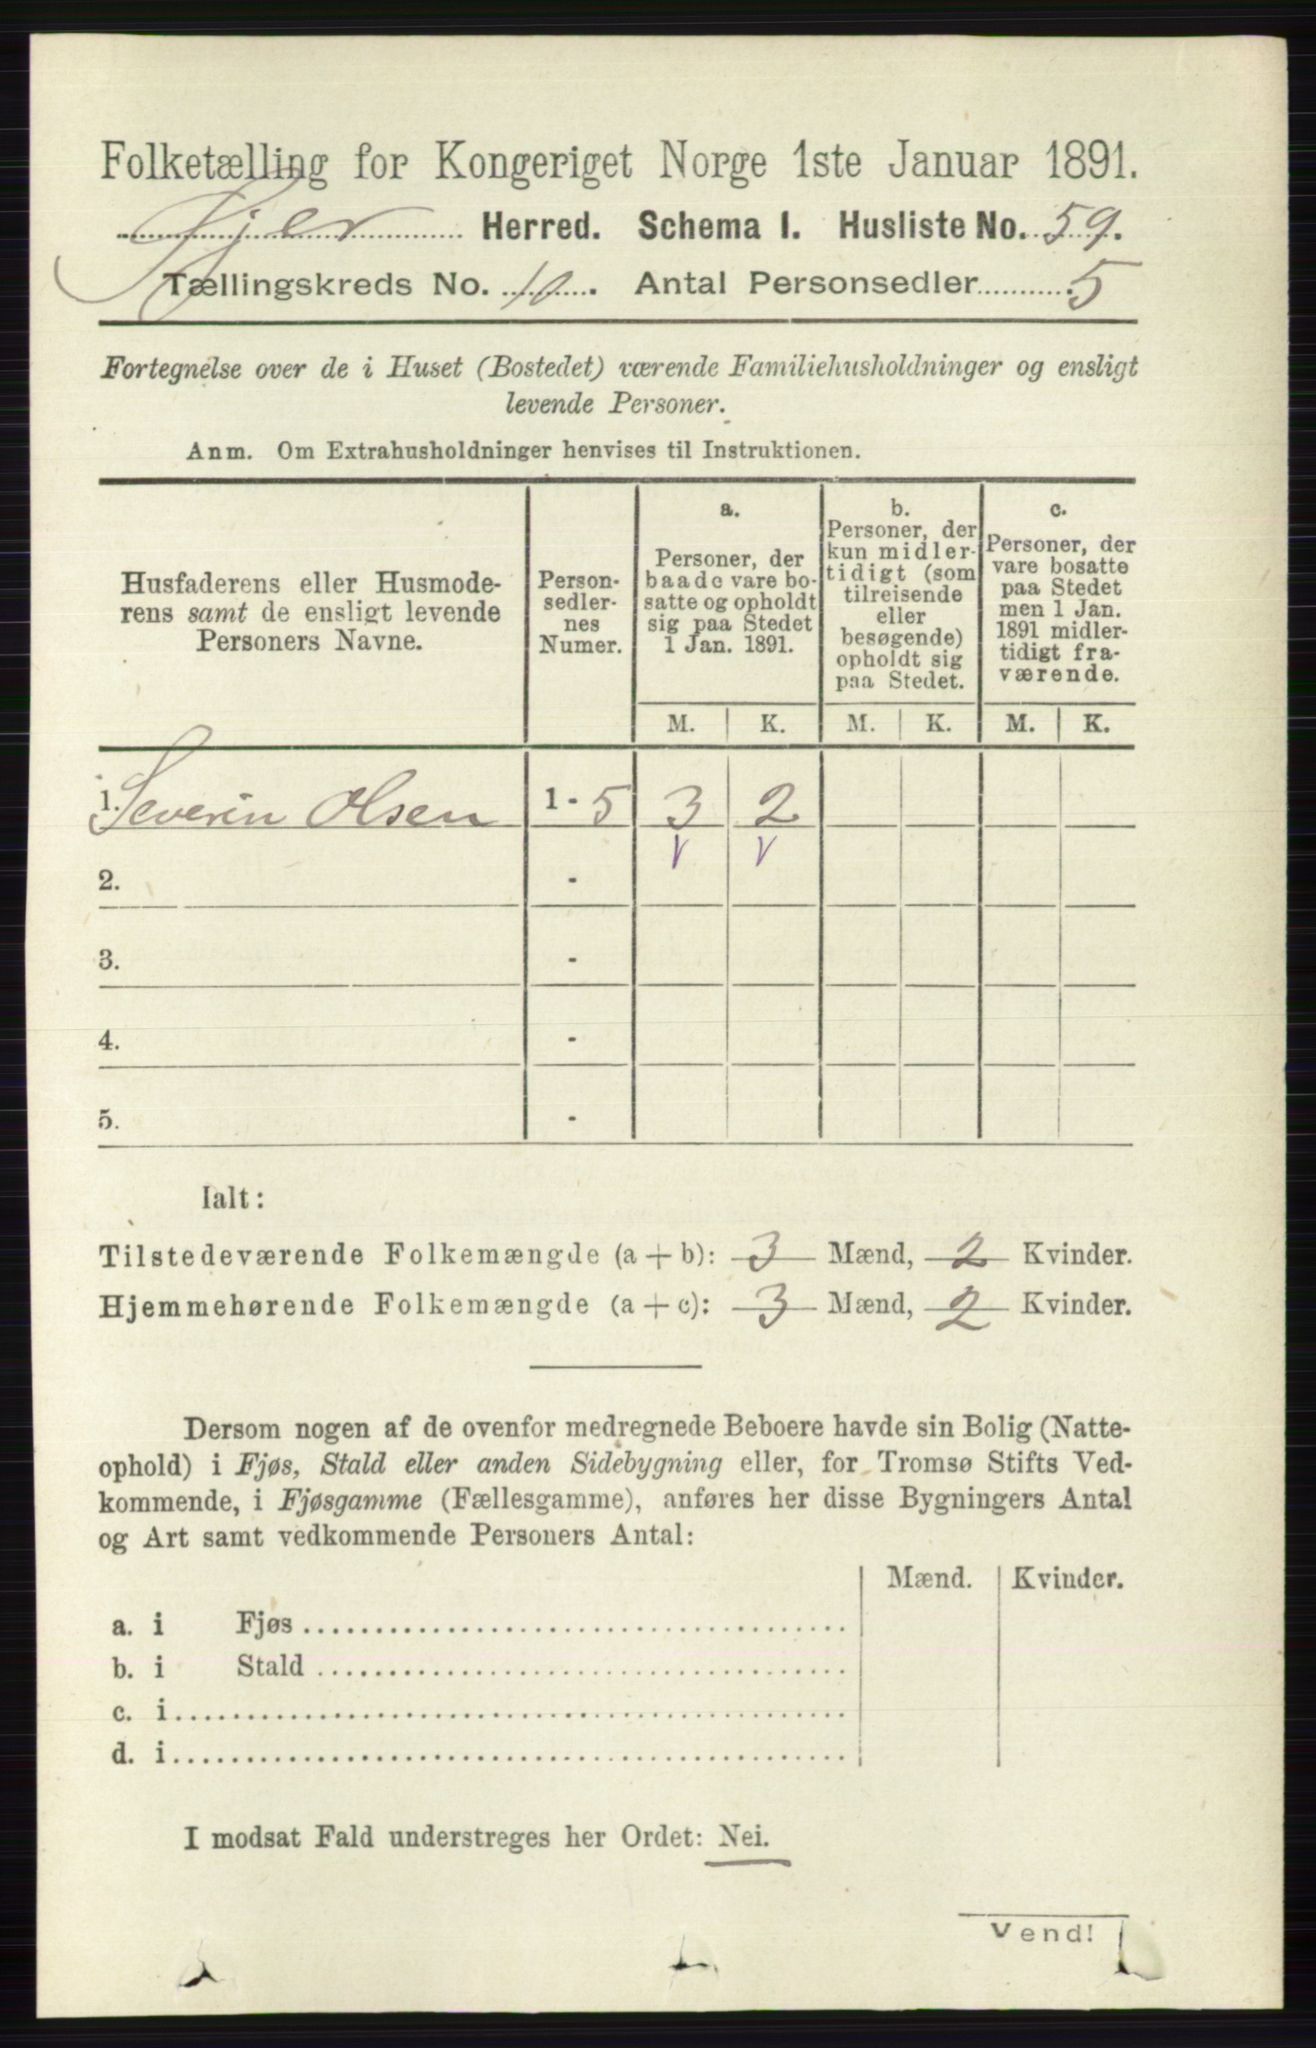 Folketælling for Kongeriget Norge 1ste Januar 1891.
Herred. Schema I. Husliste No. 59.
Tællingskreds No. 10. Antal Personsedler 5
Fortegnelse over de i Huset (Bostedet) værende Familiehusholdninger og ensligt
levende Personer.
Anm. Om Extrahusholdninger henvises til Instruktionen.
Husfaderens eller Husmode-
rens samt de ensligt levende
Personers Navne.
Person-
sedler-
nes
Numer.
a.
Personer, der
baade vare bo-
satte og opholdt
sig paa Stedet
1 Jan. 1891.
b.
Personer, der
kun midler-
tidigt (som
tilreisende
eller
besøgende)
opholdt sig
paa Stedet.
c.
Personer, der
vare bosatte
paa Stedet
men 1 Jan.
1891 midler-
tidigt fra-
værende.
M. K. M. K. M. K.
1. Severin Olsen 1 - 5 3 2
2. -
3. -
4. -
5. -
Ialt:
Tilstedeværende Folkemængde (a + b): 3 Mænd, 2 Kvinder.
Hjemmehørende Folkemængde (a + c): 3 Mænd, 2 Kvinder.
Dersom nogen af de ovenfor medregnede Beboere havde sin Bolig (Natte-
ophold) i Fjøs, Stald eller anden Sidebygning eller, for Tromsø Stifts Ved-
kommende, i Fjøsgamme (Fællesgamme), anføres her disse Bygningers Antal
og Art samt vedkommende Personers Antal:
Mænd. Kvinder.
a. i Fjøs
b. i Stald
c. i
d. i
I modsat Fald understreges her Ordet: Nei.
Vend!